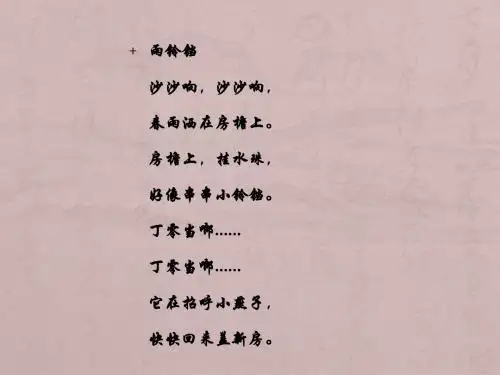 + 雨铃铛
沙沙响，沙沙响，
春雨洒在房檐上。
房檐上，挂水珠，
好像串串小铃铛。
丁零当啷……
丁零当啷……
它在招呼小燕子，
快快回来盖新房。